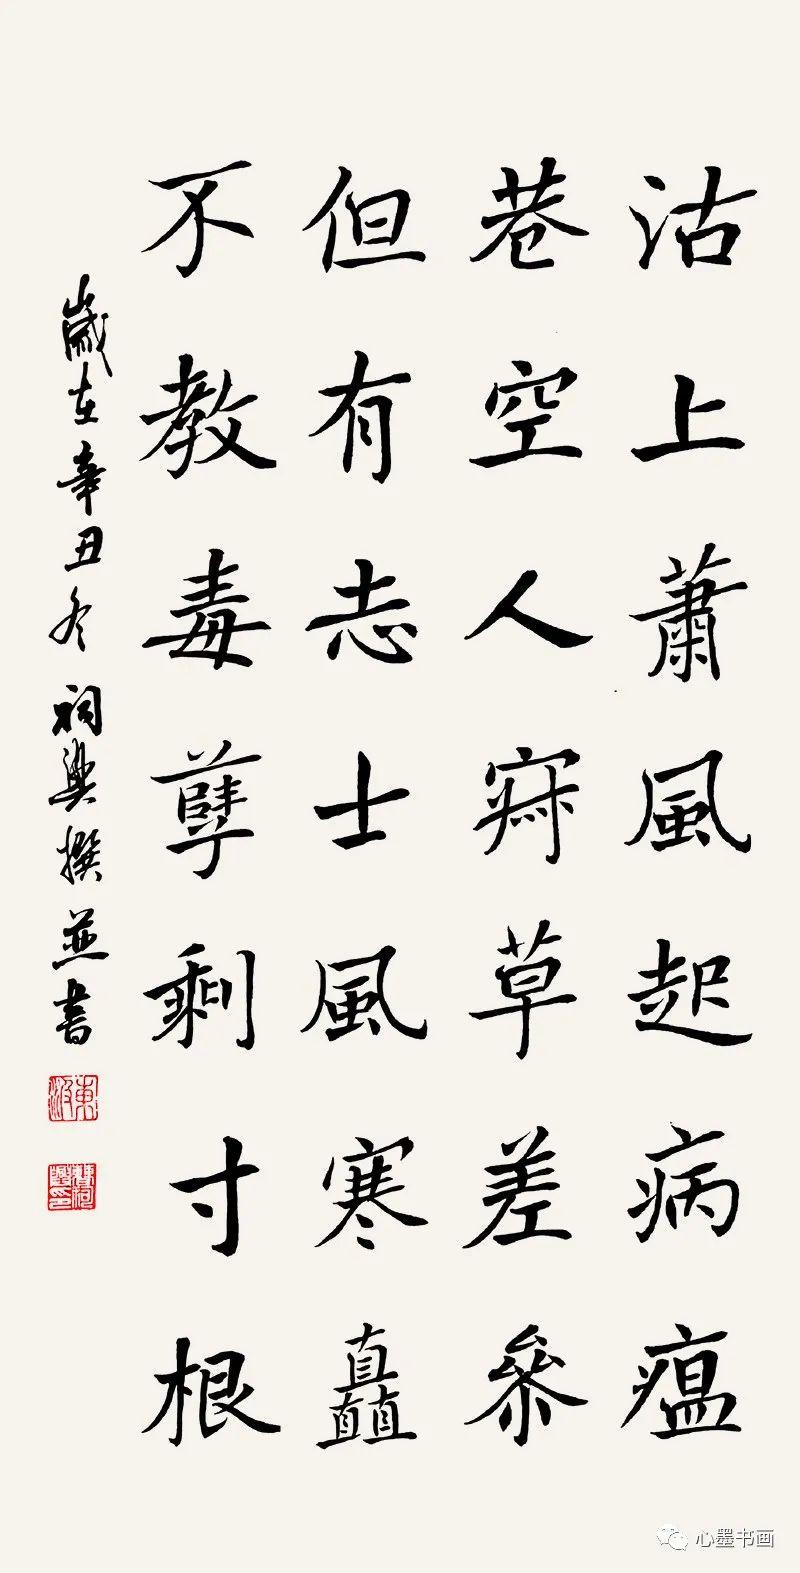 沽上蕭風起病瘟
巷空人寂草差參
但有志士風寒矗
不教毒孽剩寸根
歲在辛丑冬祠興撰並書
心墨书画